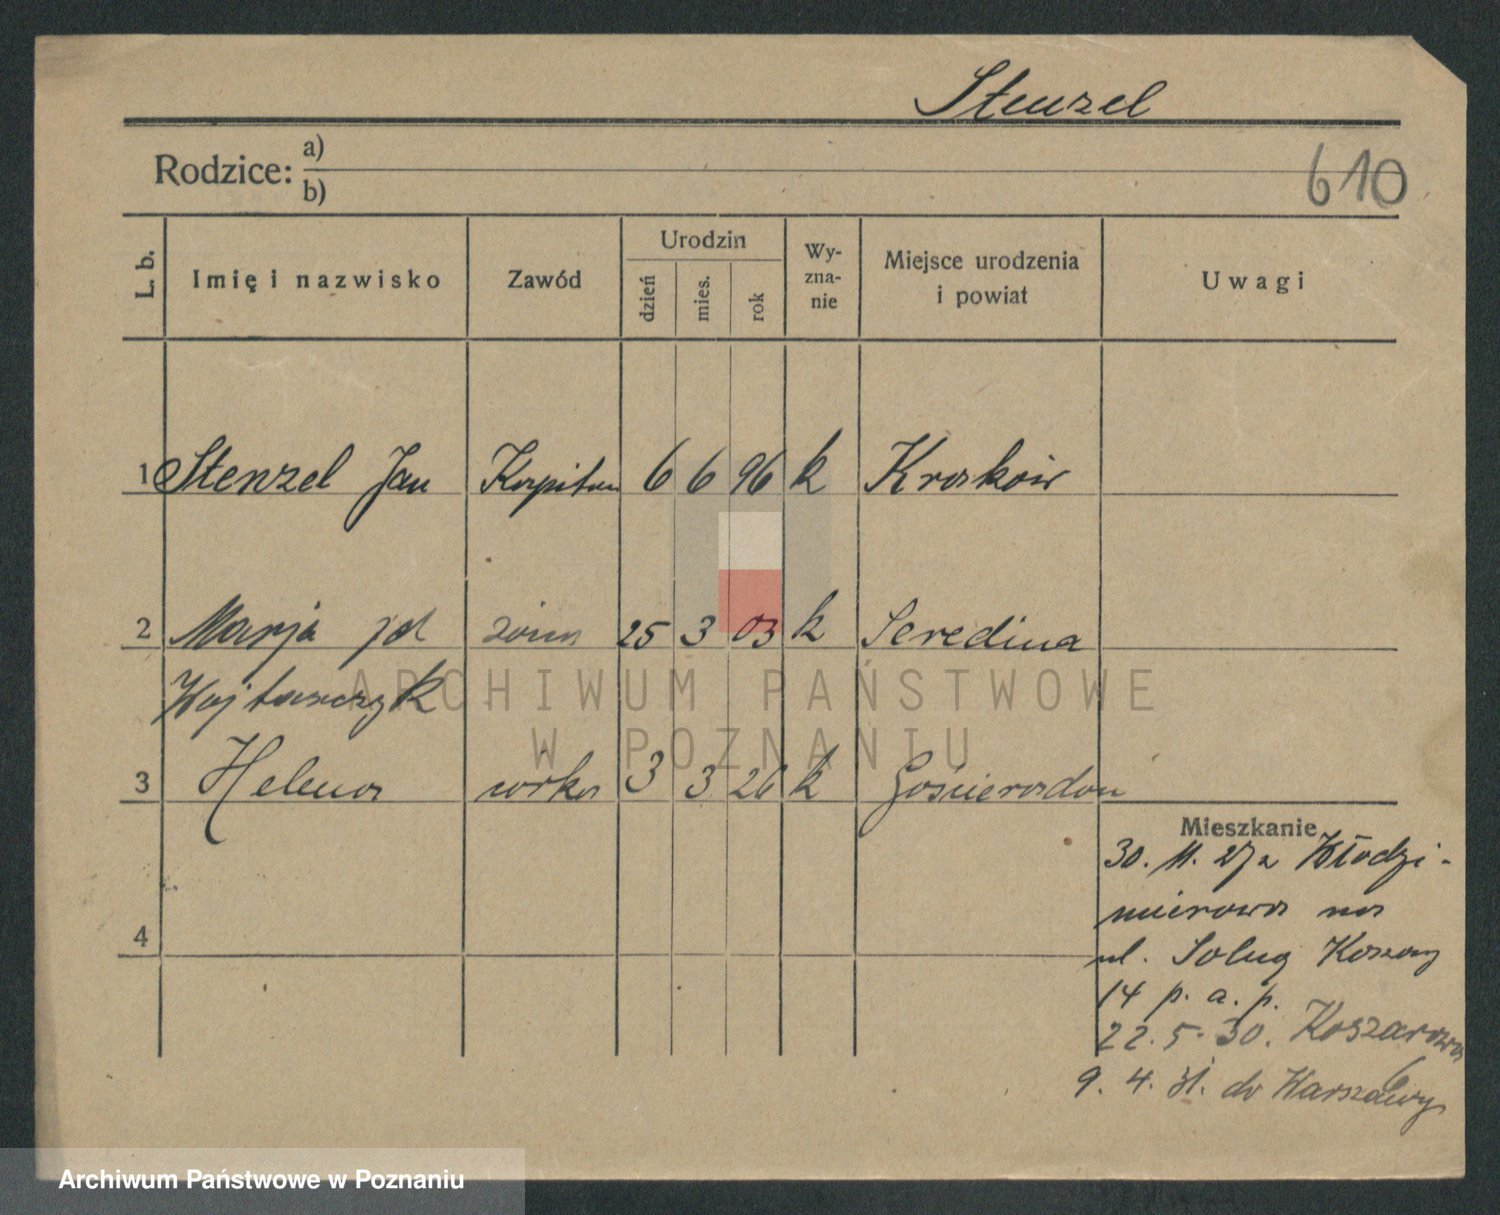 Stenzel
Rodzice: a)
b)
610
L. b.
Imię i nazwisko
Zawód
Urodzin
dzień
mies.
rok
Wy-
zna-
nie
Miejsce urodzenia
i powiat
Uwagi
1 Stenzel Jan Kapitan 6 6 96 k Kraków
2 Marja żona 25 3 03 k Seredina
Wojtarczyk
3 Helena córka 3 3 26 k
ARCHIWUM PAŃSTWOWE
W POZNANIU
4
Mieszkanie
30. 11. 27 z Włodzi-
mierowa na
ul. Koszary
14 p. a. p.
22. 5. 30. Koszarowa
6
9. 4. 31. do Warszawy
Archiwum Państwowe w Poznaniu